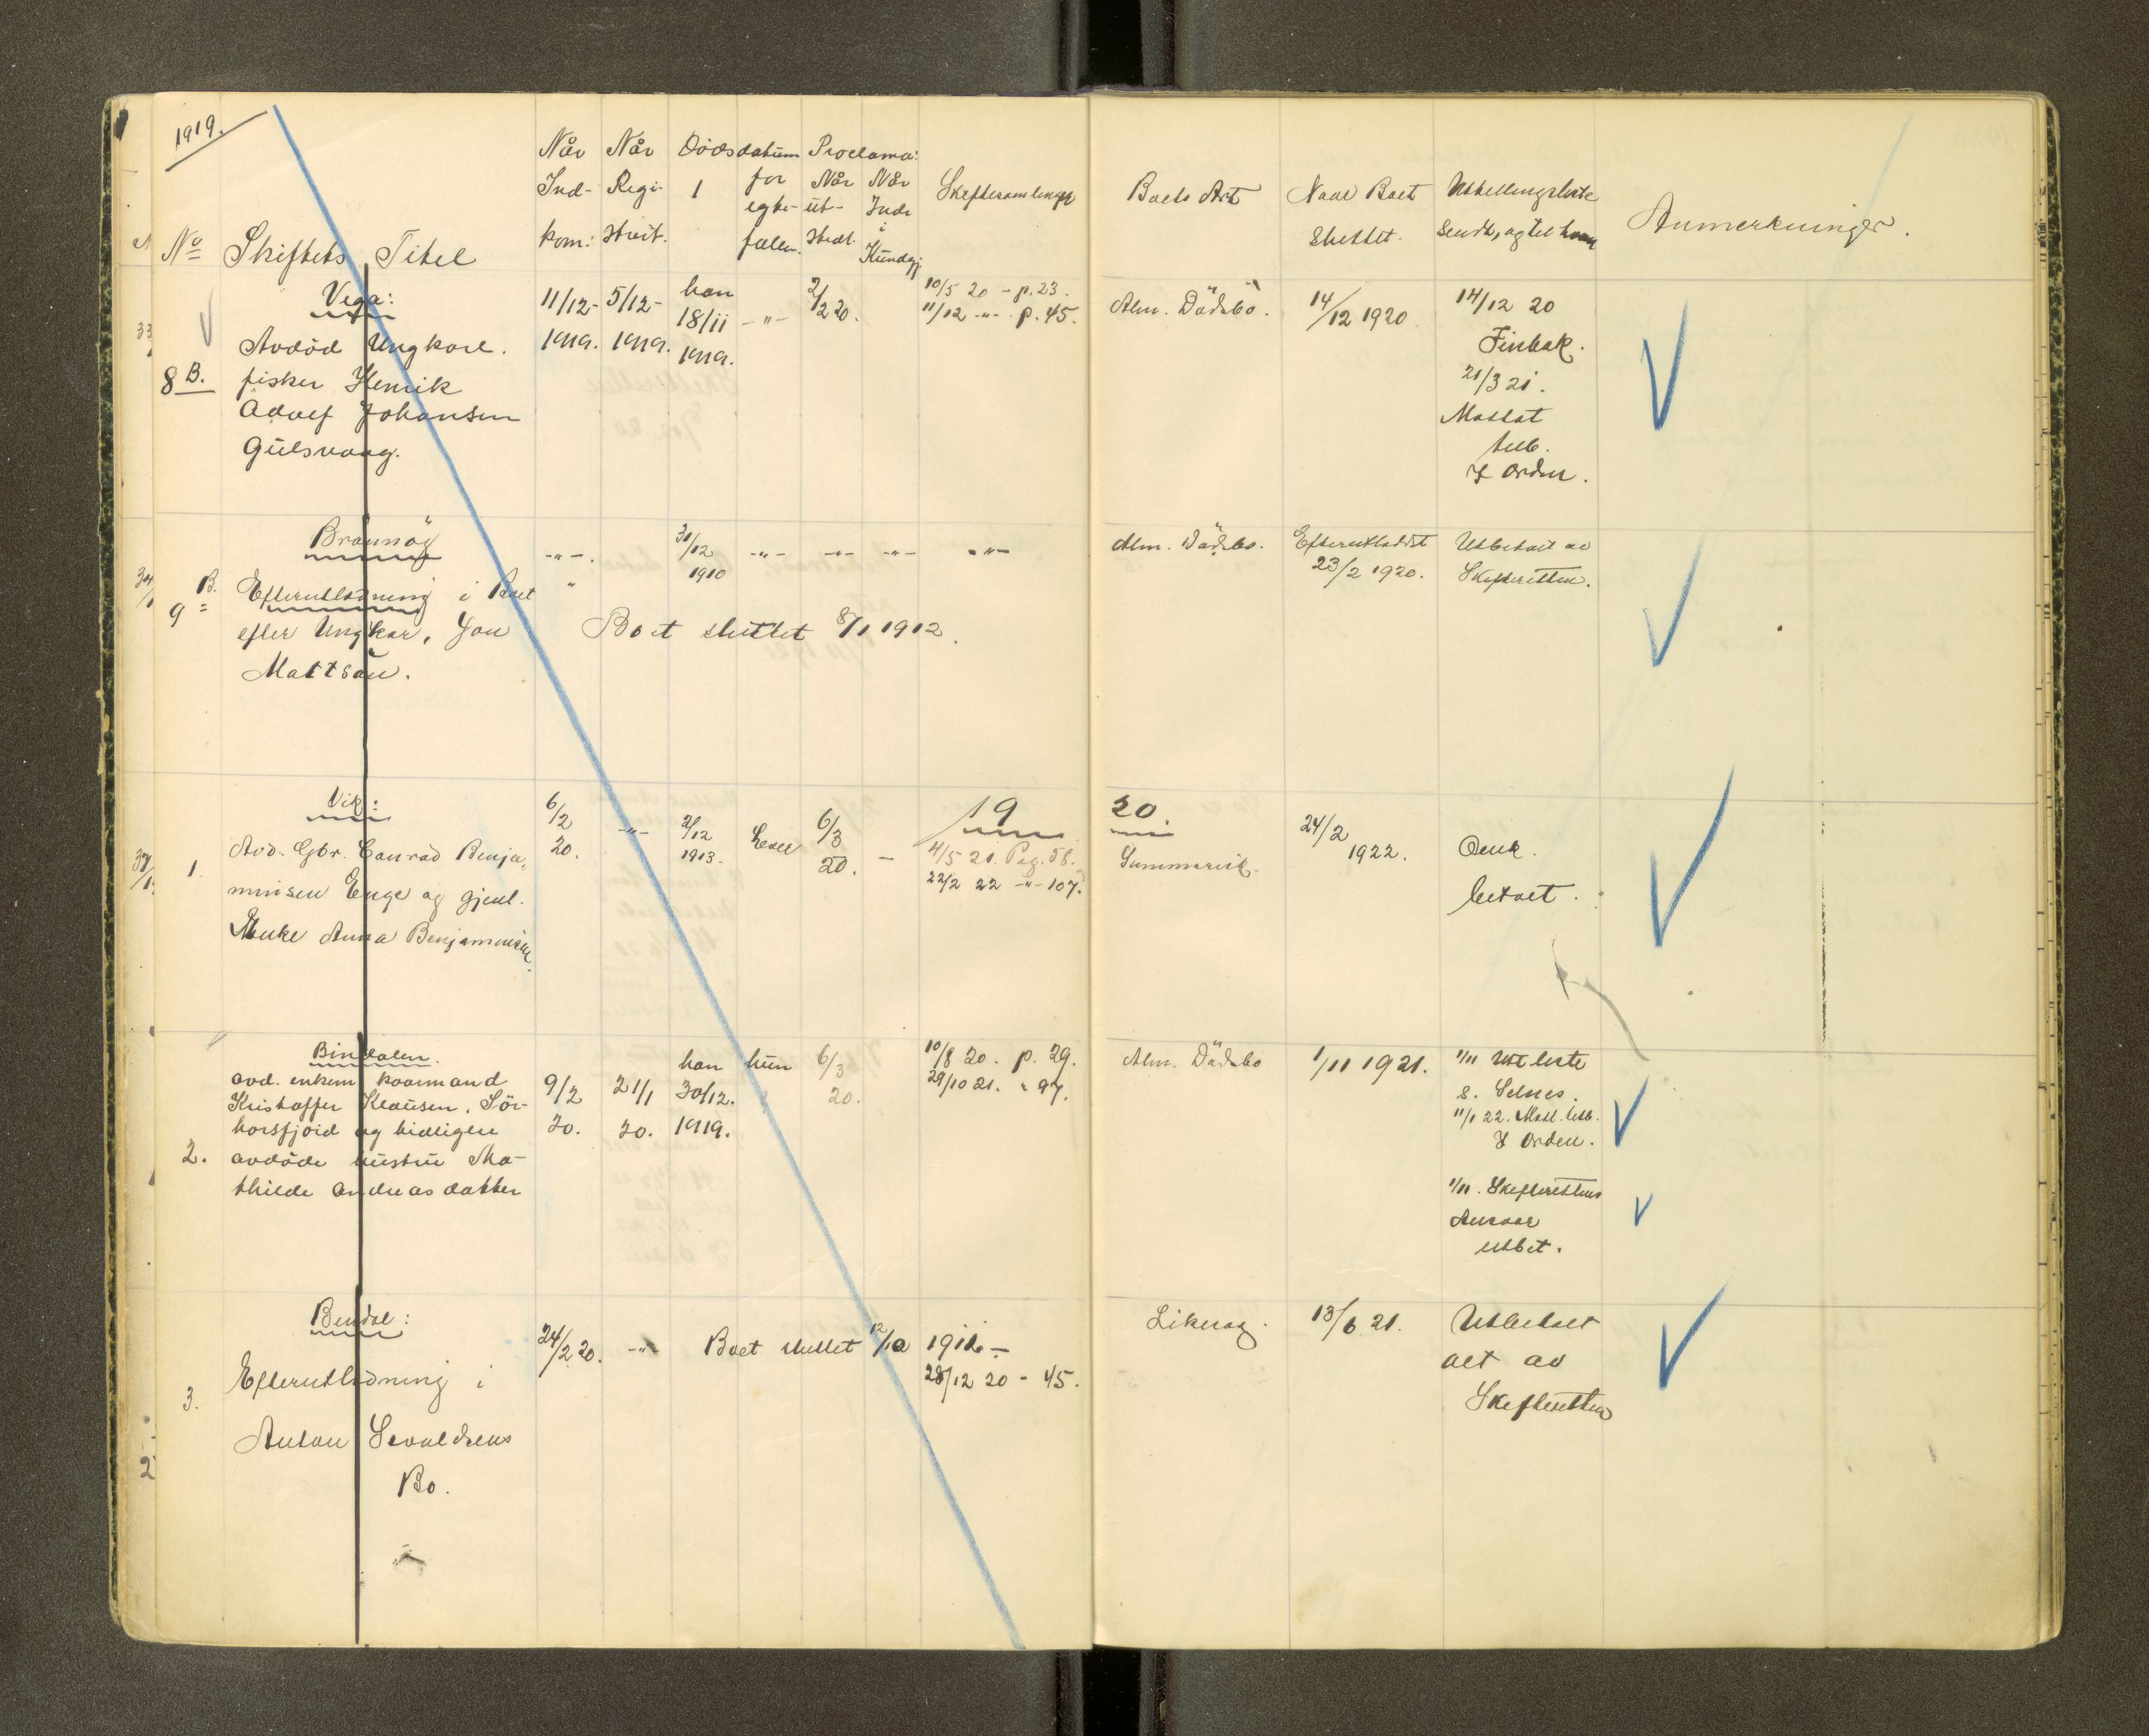 1919.
No Skiftets Titel
Når Ind- kom:
Når Regi- strert.
Dödsdatum
1
for egte- fælen.
Proclama:
Når ut- stedt.
Når Inde i Kundgj.
Skiftesamlinger
Boets Art
Naar Boet sluttet.
Utdellingsliste sendt, og til hvem
Anmerkninger.
Vega:
8 B.
Avdöd Ungkarl.
fisker Henrik
Adolf Johansen
Gulsvaag.
11/12-
1919.
5/12-
1919.
han
18/11
1919.
-"-
2/2 20.
10/5 20 - p. 23.
11/12 -"- p. 45.
Alm. Dödsbo.
14/12 1920
14/12 20
Finbak.
21/3 21.
Mottat
tilb.
I Orden.
Brönnöy
9 B.
Efterutlodning i Boet
efter Ungkar, Jon
Mattsön.
-"-.
"
31/12
1910
-"- -"- -"- -"-
Boet sluttet 8/1 1912.
Alm. Dödsbo.
Efterutloddet
23/2 1920.
Utbetalt av
Skifteretten.
19 20.
Vik:
1.
Avd. Gbr. Conrad Benja-
minsen Enge og gjenl.
Enke Anna Benjaminsen
6/2
20.
-"-
2/12
1913.
Lever
6/3
20.
-
4/5 21. Pag. 58.
22/2 22 -"- 107.
Summarisk.
24/2
1922.
Omk.
betalt.
Bindalen.
2.
avd. enkem kaarmand
Kristoffer Klausen, Sör-
horsfjord og tidligere
avdöde hustru Ma-
thilde Andreasdatter
9/2
20.
21/1
20.
han
30/12.
1919.
hun
?
6/3
20.
10/8 20. p. 29.
29/10 21. " 97.
Alm. Dödsbo
1/11 1921.
1/11 Utl liste
s. Selnes.
11/1 22. Mott. tilb.
I Orden.
1/11. Skifterettens
Ansvar
utbet.
Bindal:
3.
Efterutlodning i
Anton Sevaldsens
Bo.
24/2 20.
-"-
Boet sluttet 12/10 1916 -
28/12 20 - 45.
13/6 21.
Utbetalt
alt av
Skifteretten